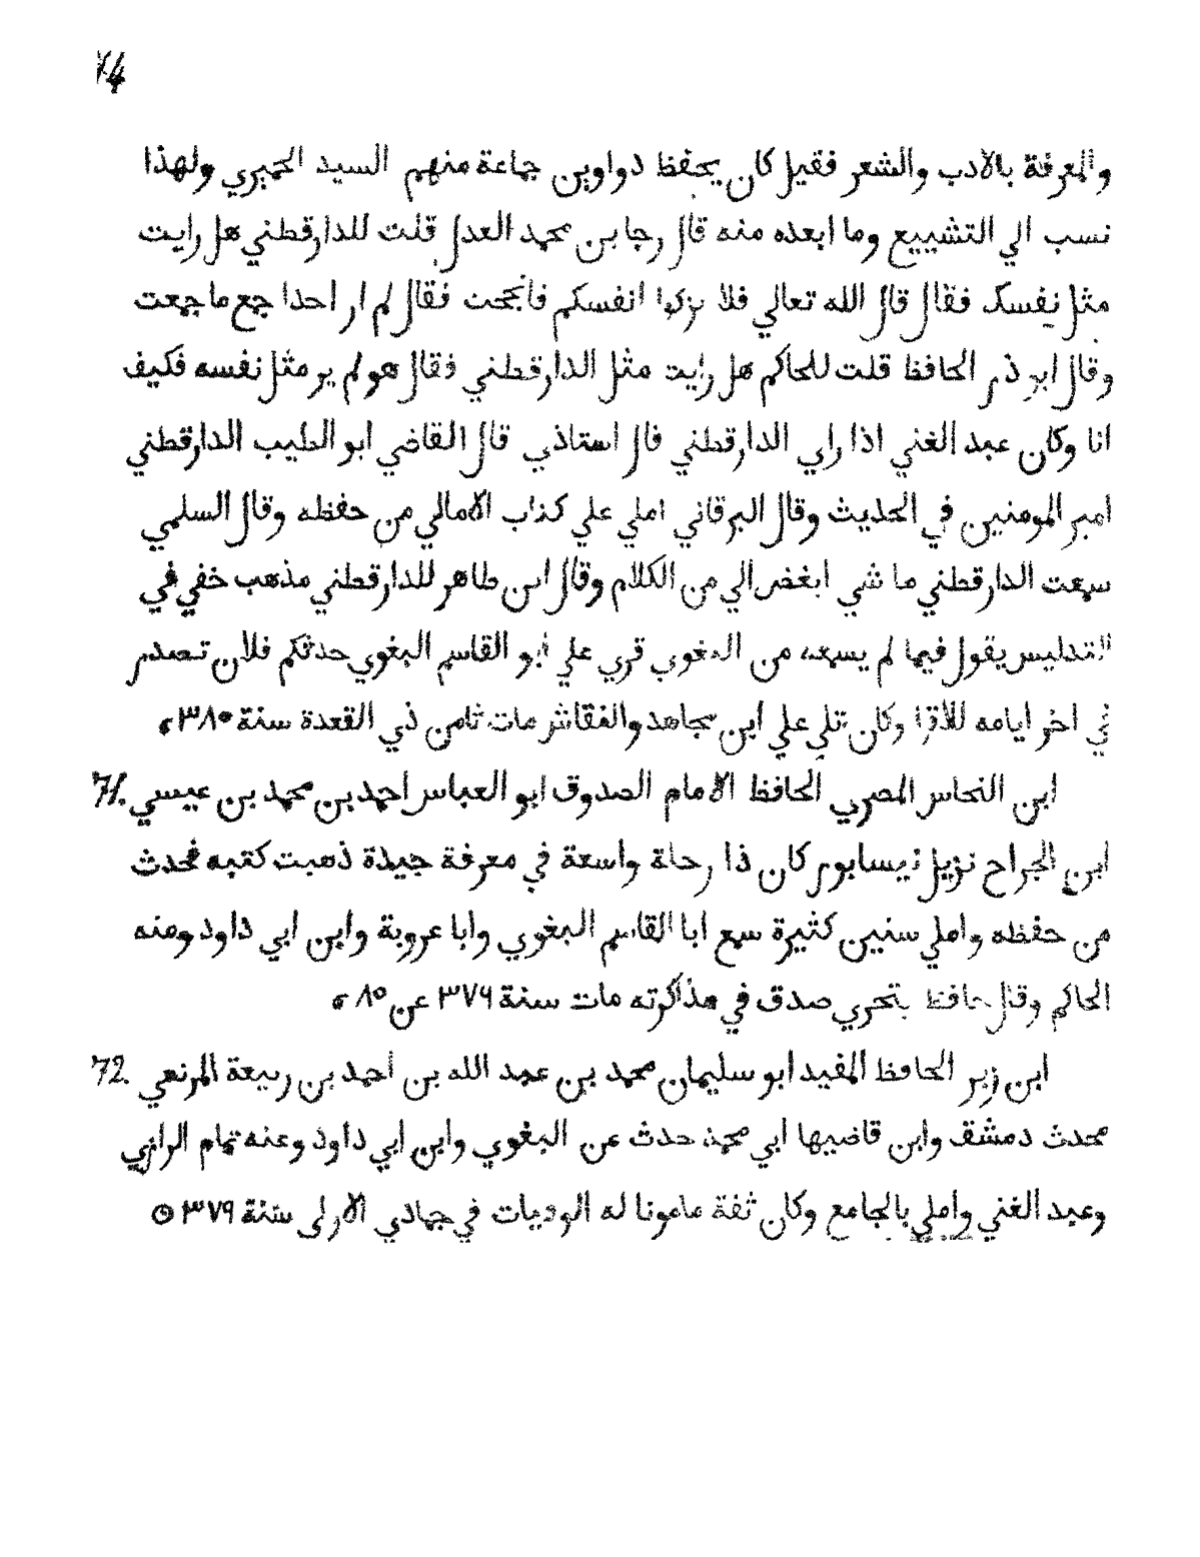 74
والمعرفة بالادب والشعر فقيل كان يحفظ دواوين جماعة منهم السيد الحميري ولهذا
نسب الي التشييع وما ابعده منه قال رجا بن محمد العدل قلت للدارقطني هل رايت
مثل نفسك فقال قال الله تعالي فلا تزكوا انفسكم فالححت فقال لم ار احدا جمع ما جمعت
وقال ابو ذر الحافظ قلت للحاكم هل رايت مثل الدارقطني فقال هو لم ير مثل نفسه فكيف
انا وكان عبد الغني اذا راي الدارقطني قال استاذي قال القاضي ابو الطيب الدارقطني
امير المومنين في الحديث وقال البرقاني املي علي كتاب الامالي من حفظه وقال السلمي
سمعت الدارقطني ما شي ابغض الي من الكلام وقال ابن طاهر للدارقطني مذهب خفي في
التدليس يقول فيما لم يسمعه من البغوي قري علي ابو القاسم البغوي حدثكم فلان تصدر
في اخر ايامه للاقرا وكان تلي علي ابن مجاهد والنقاش مات ثامن ذي القعدة سنة ٣٨٥
71. ابن النحاس المصري الحافظ الامام الصدوق ابو العباس احمد بن محمد بن عيسي
ابن الجراح نزيل نيسابور كان ذا رحلة واسعة في معرفة جيدة ذهبت كتبه فحدث
من حفظه واملي سنين كثيرة سمع ابا القاسم البغوي وابا عروبة وابن ابي داود ومنه
الحاكم وقال حافظ يتحري صدق في مذاكرته مات سنة ٣٧٦ عن ٨٥
72. ابن زبر الحافظ المفيد ابو سليمان محمد بن عبد الله بن احمد بن ربيعة الربعي
محدث دمشق وابن قاضيها ابي محمد حدث عن البغوي وابن ابي داود وعنه تمام الرازي
وعبد الغني واملي بالجامع وكان ثقة مامونا له الوفيات في جمادي الاولى سنة ٣٧٩